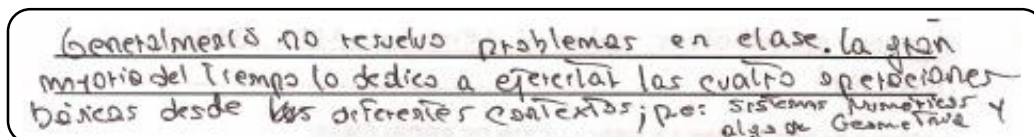 Generalmente no resuelvo problemas en clase. la gran
mayoria del Tiempo lo dedico a ejercitar las cuatro operaciones
básicas desde los diferentes contextos; p.e: sistemas Numéricos y
algo de Geometria